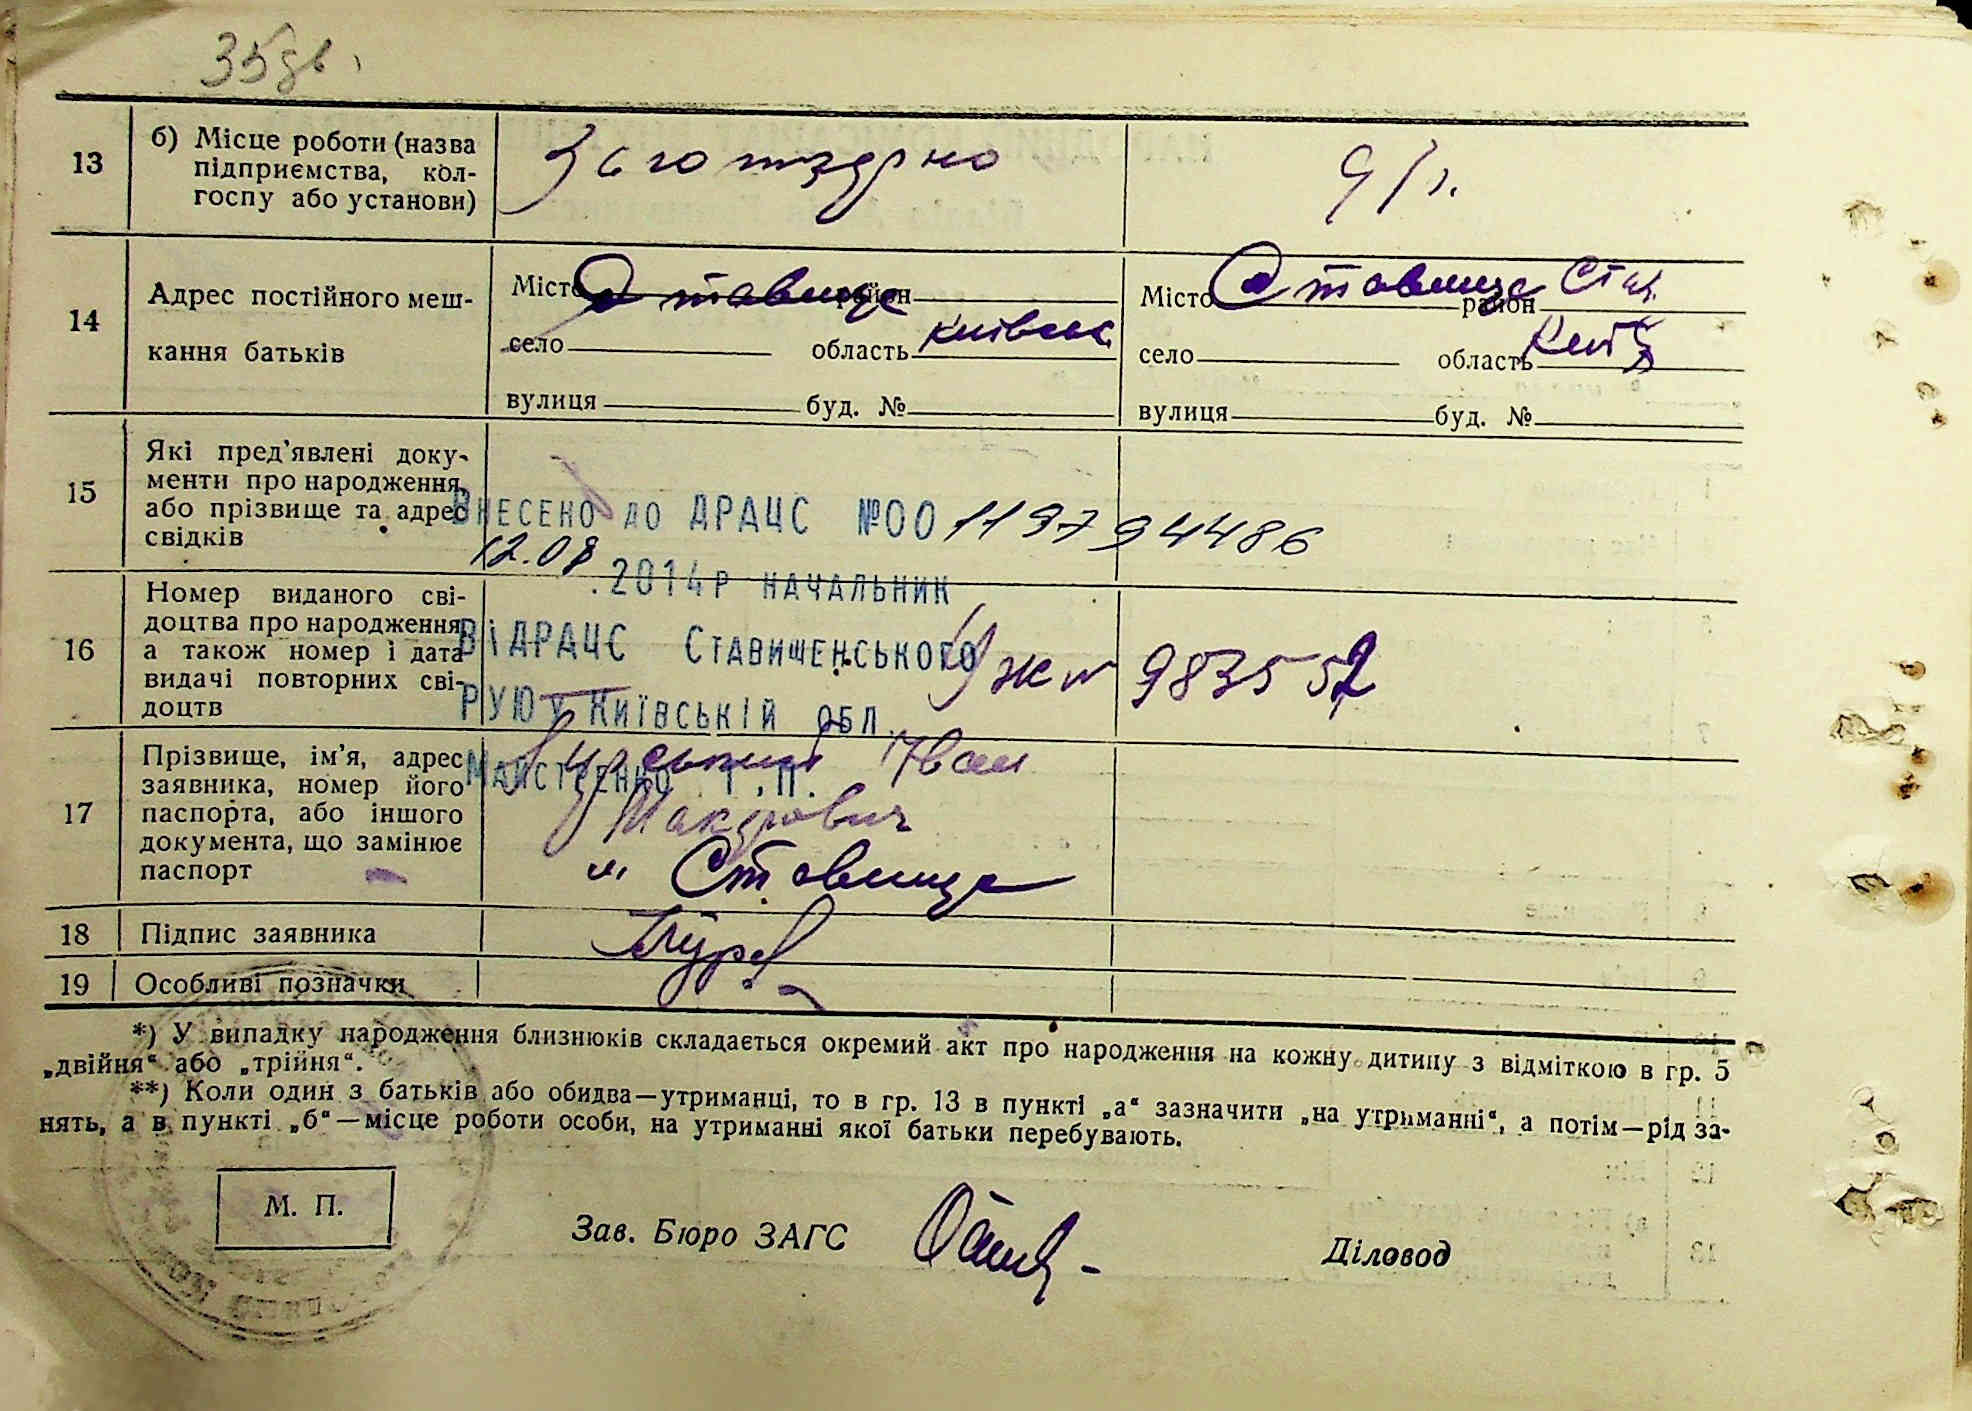 35
13
б) Місце роботи (назва
підприємства, кол-
госпу або установи)
Заготзерно
14
Адрес постійного меш-
кання батьків
Місто Ставище район
село область Київськ
вулиця буд. №
Місто Ставище район Став.
село область
вулиця буд. №
15
Які пред'явлені доку-
менти про народження
або прізвище та адрес
свідків
Внесено до ДРАЦС №00 1197 94486
12.08 .2014р начальник
ВДРАЦС Ставищенського
РУЮ Київській обл.
16
Номер виданого сві-
доцтва про народження,
а також номер і дата
видачі повторних сві-
доцтв
17
Прізвище, ім'я, адрес
заявника, номер його
паспорта, або іншого
документа, що замінює
паспорт
Іван
Макарович
м. Ставище
18
Підпис заявника
19
Особливі позначки
*) У випадку народження близнюків складається окремий акт про народження на кожну дитину з відміткою в гр. 5
„двійня“ або „трійня“.
**) Коли один з батьків або обидва—утриманці, то в гр. 13 в пункті „а“ зазначити „на утриманні“, а потім—рід за-
нять, а в пункті „б“—місце роботи особи, на утриманні якої батьки перебувають.
М. П.
Зав. Бюро ЗАГС
Діловод